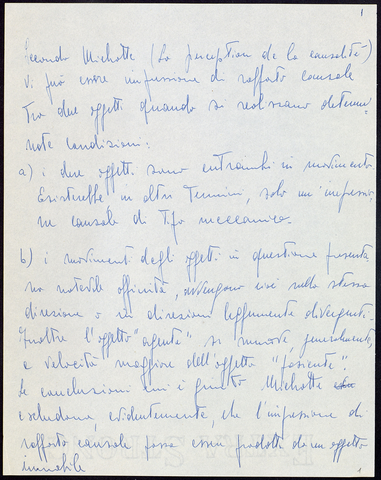 1
Secondo Michotte (La perception de la causalité)
vi può essere impressione di rapporto causale
tra due oggetti quando si realizzano determi-
nate condizioni:
a) i due oggetti sono entrambi in movimento.
Esisterebbe in altri termini, solo un'impressio
ne causale di tipo meccanico.
b) i movimenti degli oggetti in questione presenta
no notevole affinità, avvengono cioè nella stessa
direzione o in direzioni leggermente divergenti.
Inoltre l'oggetto "agente" si muove, generalmente,
a velocità maggiore dell'oggetto "paziente".
Le conclusioni cui è giunto Michotte
escludono, evidentemente, che l'impressione di
rapporto causale possa esser prodotta di un oggetto
immobile